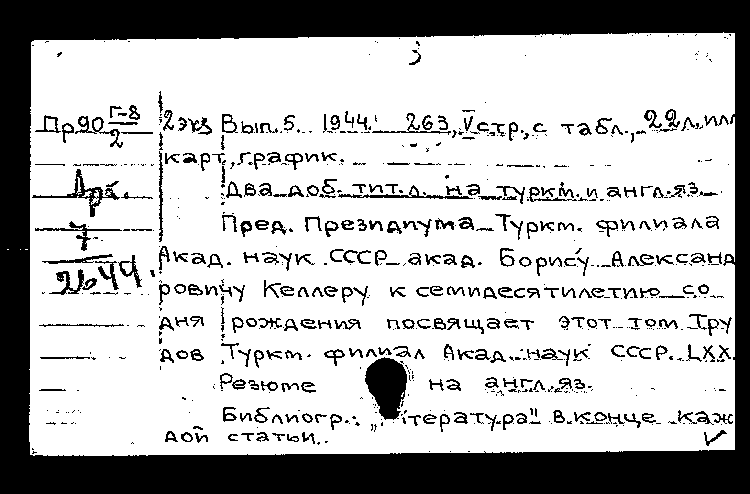 3
Пр90 Г-8/2 2экз Вып.5. 1944. 263, V стр., с табл., 22л.илл
карт., график.
Два доб. тит. л. на туркм. и англ. яз.
Арх. 7
Пред. Президиума Туркм. филиала
Акад. наук СССР акад. Борису Александ
2644.
ровичу Келлеру к семидесятилетию со
дня рождения посвящает этот том Тру
дов Туркм. филиал Акад. наук СССР. LXX.
Резюме на англ. яз.
Библиогр.: "тература" в конце каж
дой статьи.